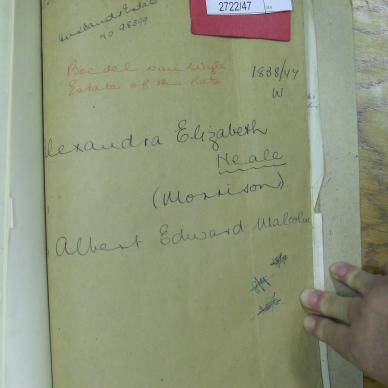 2722/47
Husband's Estate
NO 98399
Boedel van Wyle
Estate of the Late
1838/47
W
Alexandra Elizabeth
Neale
(Morrison)
Albert Edward Malcolm